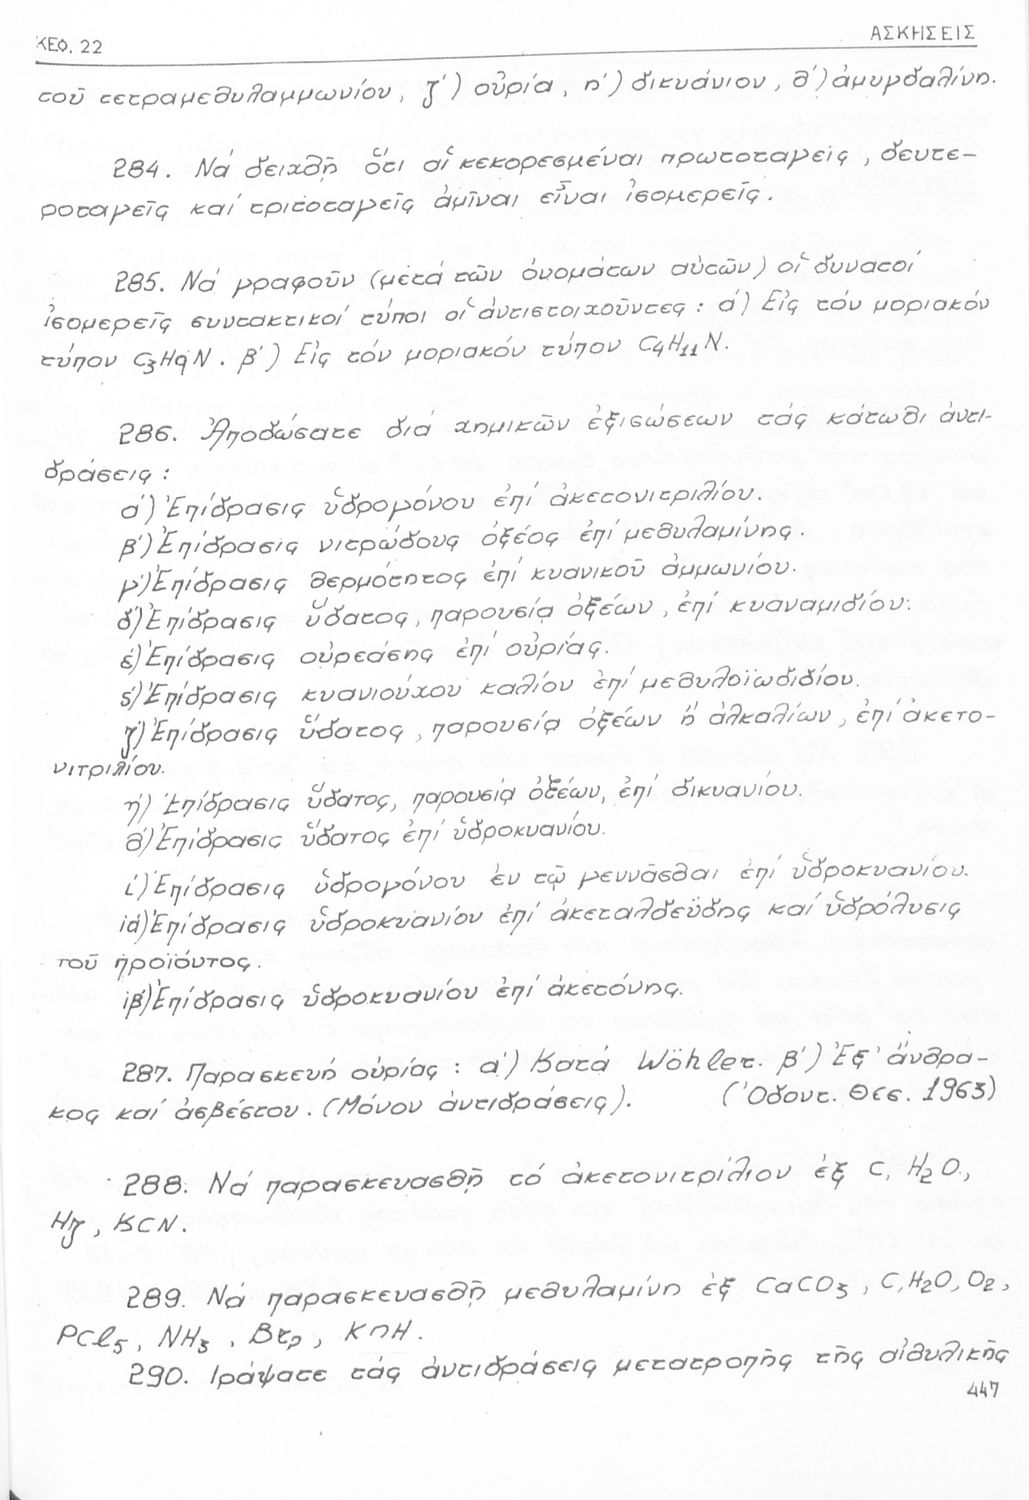 ΚΕΦ. 22
ΑΣΚΗΣΕΙΣ
τοῦ τετραμεθυλαμμωνίου, ζ') οὐρία, η') δικυάνιον, θ') ἀμυγδαλίνη.
284. Νά δειχθῇ ὅτι αἱ κεκορεσμέναι πρωτοταγεῖς, δευτε-
ροταγεῖς καί τριτοταγεῖς ἀμῖναι εἶναι ἰσομερεῖς.
285. Νά γραφοῦν (μετά τῶν ὀνομάτων αὐτῶν) οἱ δυνατοί
ἰσομερεῖς συντακτικοί τύποι οἱ ἀντιστοιχοῦντες: α') Εἰς τόν μοριακόν
τύπον C3H9N. β') Εἰς τόν μοριακόν τύπον C4H11N.
286. Ἀποδώσατε διά χημικῶν ἐξισώσεων τάς κάτωθι ἀντι-
δράσεις:
α') Ἐπίδρασις ὑδρογόνου ἐπί ἀκετονιτριλίου.
β') Ἐπίδρασις νιτρώδους ὀξέος ἐπί μεθυλαμίνης.
γ') Ἐπίδρασις θερμότητος ἐπί κυανικοῦ ἀμμωνίου.
δ') Ἐπίδρασις ὕδατος, παρουσίᾳ ὀξέων, ἐπί κυαναμιδίου.
ε') Ἐπίδρασις οὐρεάσης ἐπί οὐρίας.
ς') Ἐπίδρασις κυανιούχου καλίου ἐπί μεθυλοϊωδιδίου.
ζ') Ἐπίδρασις ὕδατος, παρουσίᾳ ὀξέων ἤ ἀλκαλίων, ἐπί ἀκετο-
νιτριλίου.
η') Ἐπίδρασις ὕδατος, παρουσίᾳ ὀξέων, ἐπί δικυανίου.
θ') Ἐπίδρασις ὕδατος ἐπί ὑδροκυανίου.
ι') Ἐπίδρασις ὑδρογόνου ἐν τῷ γεννᾶσθαι ἐπί ὑδροκυανίου.
ια') Ἐπίδρασις ὑδροκυανίου ἐπί ἀκεταλδεΰδης καί ὑδρόλυσις
τοῦ προϊόντος.
ιβ') Ἐπίδρασις ὑδροκυανίου ἐπί ἀκετόνης.
287. Παρασκευή οὐρίας: α') Κατά Wöhler. β') Ἐξ' ἄνθρα-
κος καί ἀσβέστου. (Μόνον ἀντιδράσεις). (Ὀδοντ. Θεσ. 1963)
288. Νά παρασκευασθῇ τό ἀκετονιτρίλιον ἐξ C, H2O,
Hy, KCN.
289. Νά παρασκευασθῇ μεθυλαμίνη ἐξ CaCO3, C, H2O, O2,
PCl5, NH3, Br2, KOH.
290. Γράψατε τάς ἀντιδράσεις μετατροπῆς τῆς αἰθυλικῆς
447